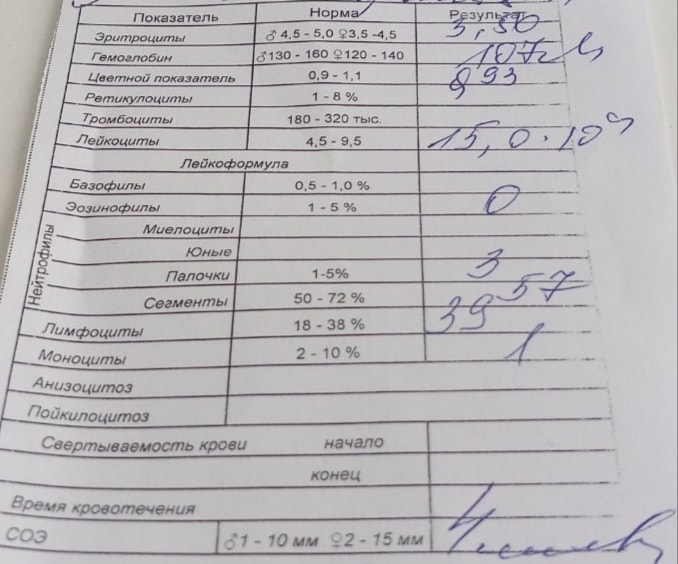 Показатель Норма Результат
Эритроциты ♂ 4,5 - 5,0 ♀3,5 -4,5 3,50
Гемоглобин ♂130 - 160 ♀120 - 140 107г/л
Цветной показатель 0,9 - 1,1 0,93
Ретикулоциты 1 - 8 %
Тромбоциты 180 - 320 тыс.
Лейкоциты 4,5 - 9,5 15,0·10⁹
Лейкоформула
Базофилы 0,5 - 1,0 %
Эозинофилы 1 - 5 % 0
Нейтрофилы
Миелоциты
Юные
Палочки 1-5% 3
Сегменты 50 - 72 % 57
Лимфоциты 18 - 38 % 39
Моноциты 2 - 10 % 1
Анизоцитоз
Пойкилоцитоз
Свертываемость крови начало
конец
Время кровотечения
СОЭ ♂1 - 10 мм ♀2 - 15 мм 4